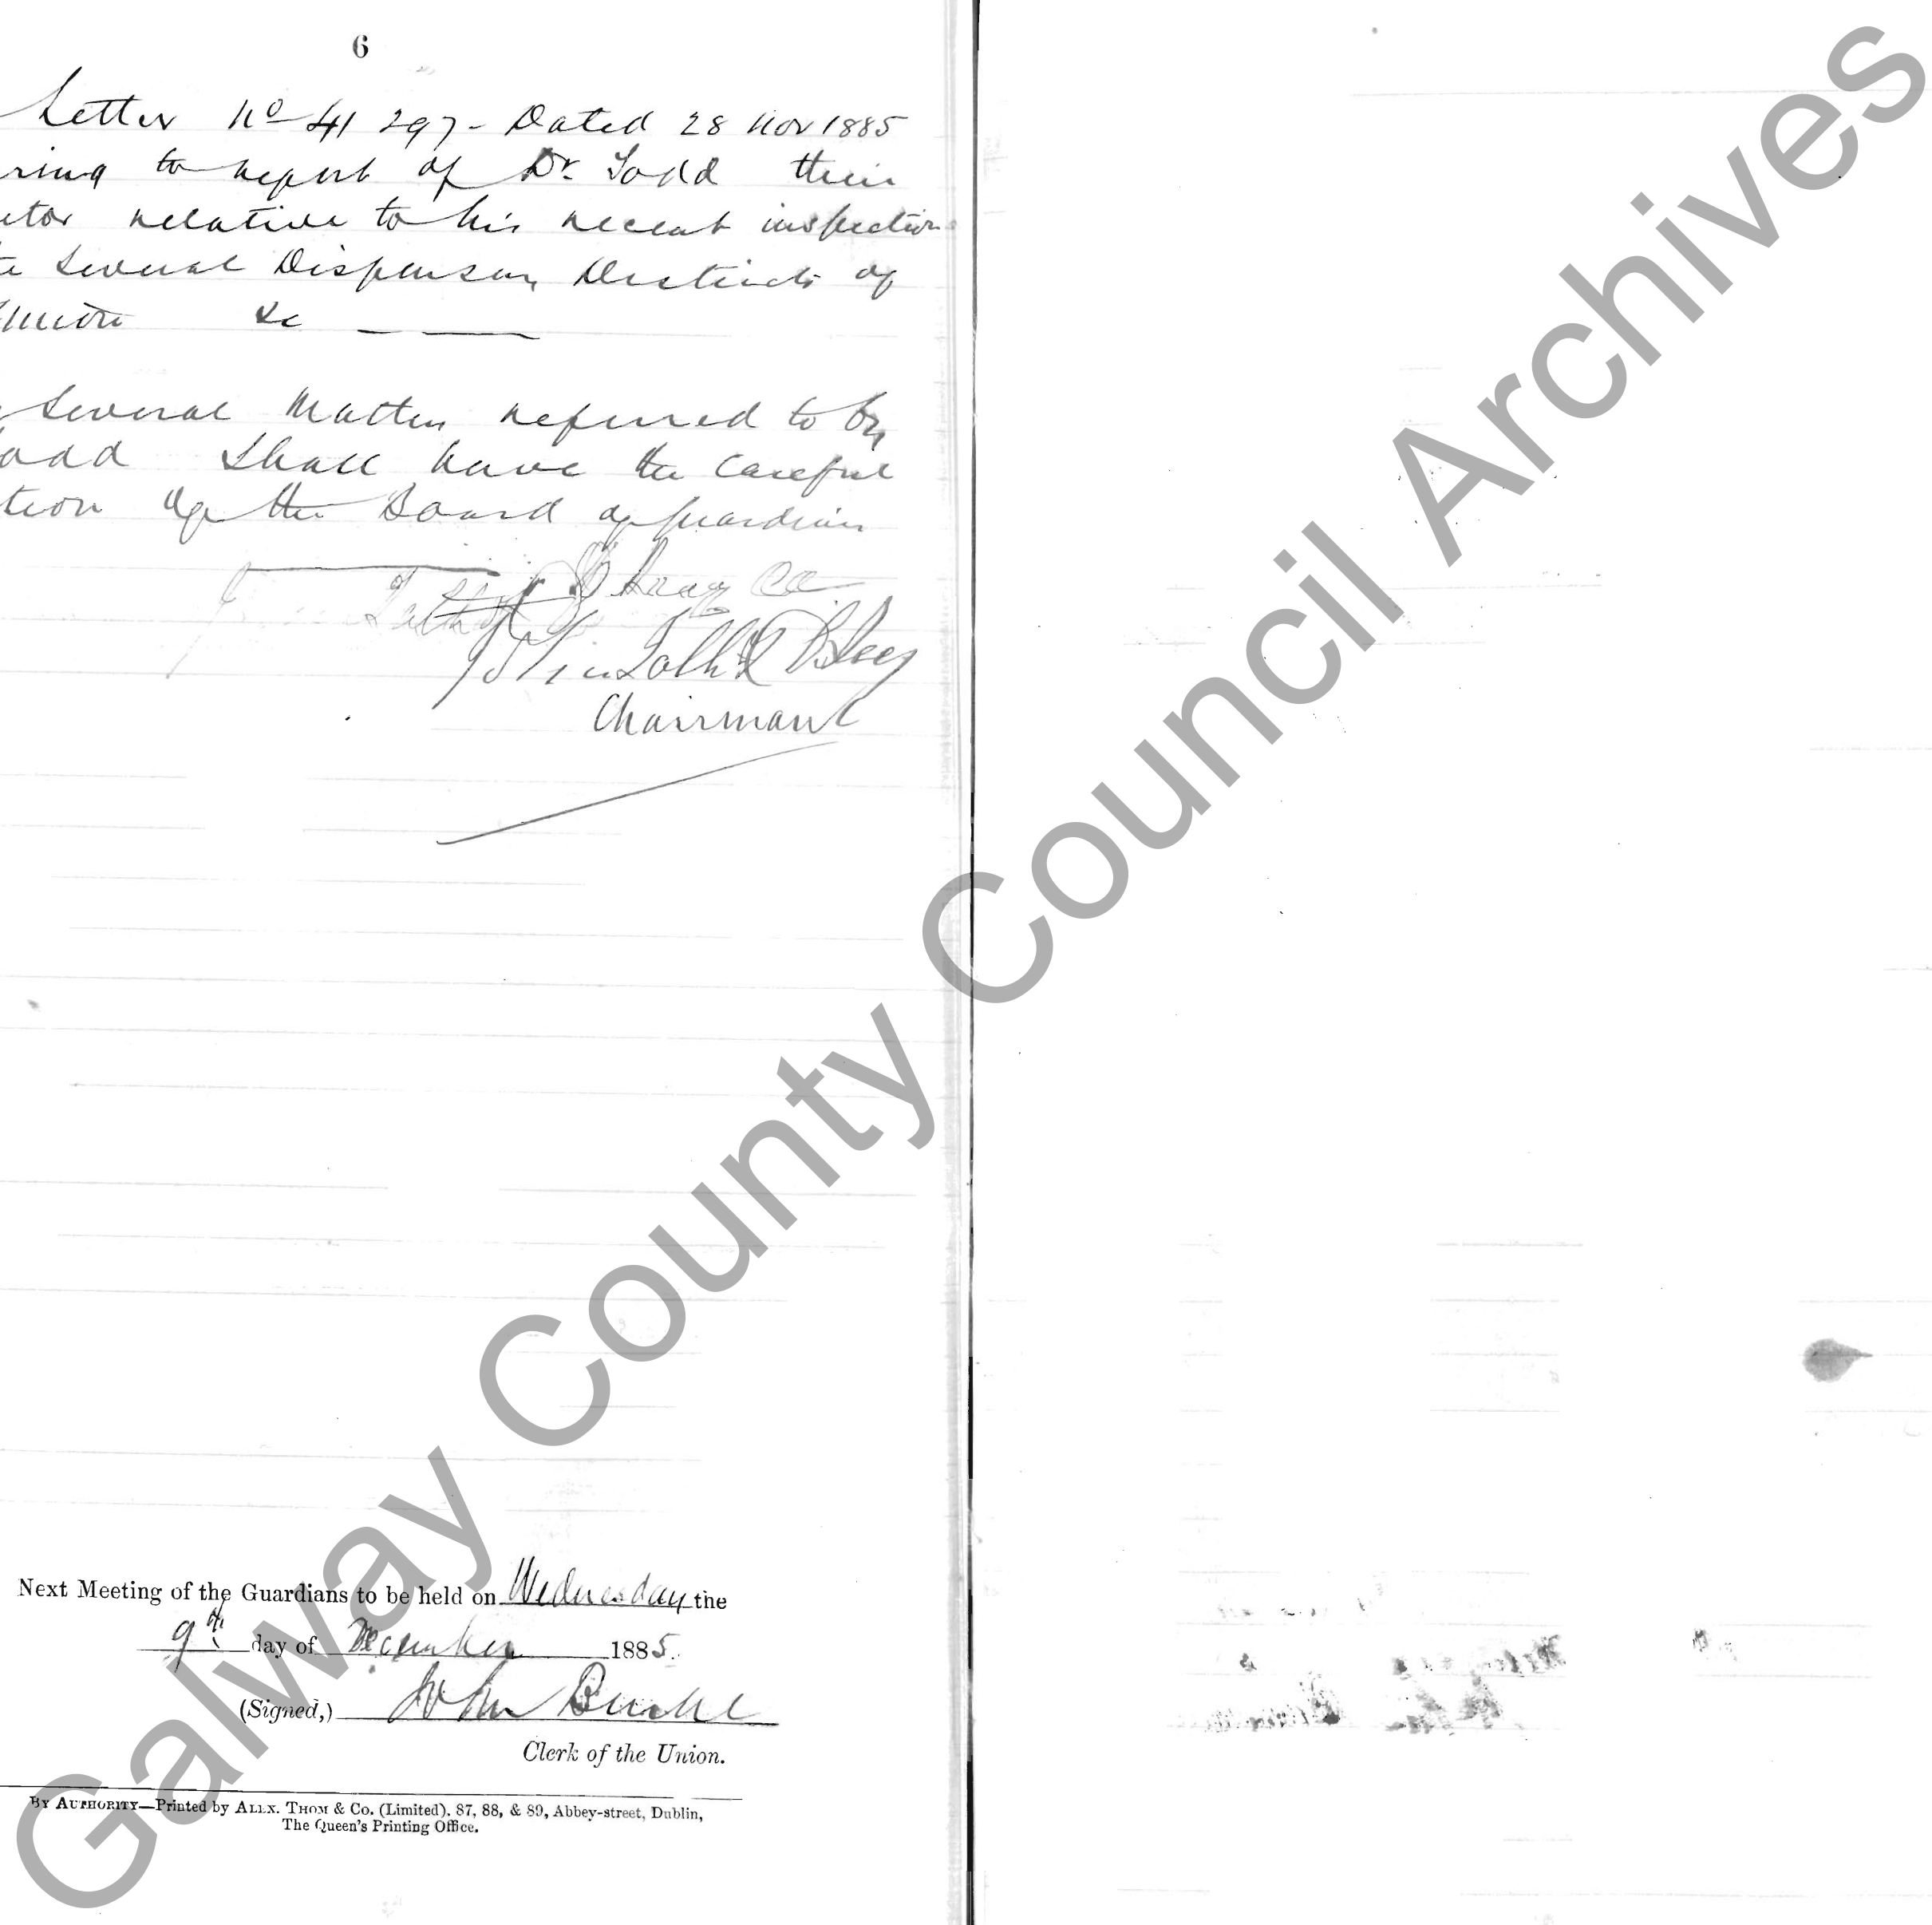 6
Letter No 41 297 - Dated 28 Nov 1885
ring to report of Dr. Todd their
ctor relative to his recent inspection
e Several Dispensary Districts of
Union &c
Several Matters referred to by
odd Shall have the Careful
tion of the Board of Guardians
John
Chairman
Next Meeting of the Guardians to be held on Wednesday the
9th day of December 1885.
(Signed,) John Burke
Clerk of the Union.
BY AUTHORITY—Printed by ALEX. THOM & Co. (Limited). 87, 88, & 89, Abbey-street, Dublin,
The Queen's Printing Office.
Galway County Council Archives